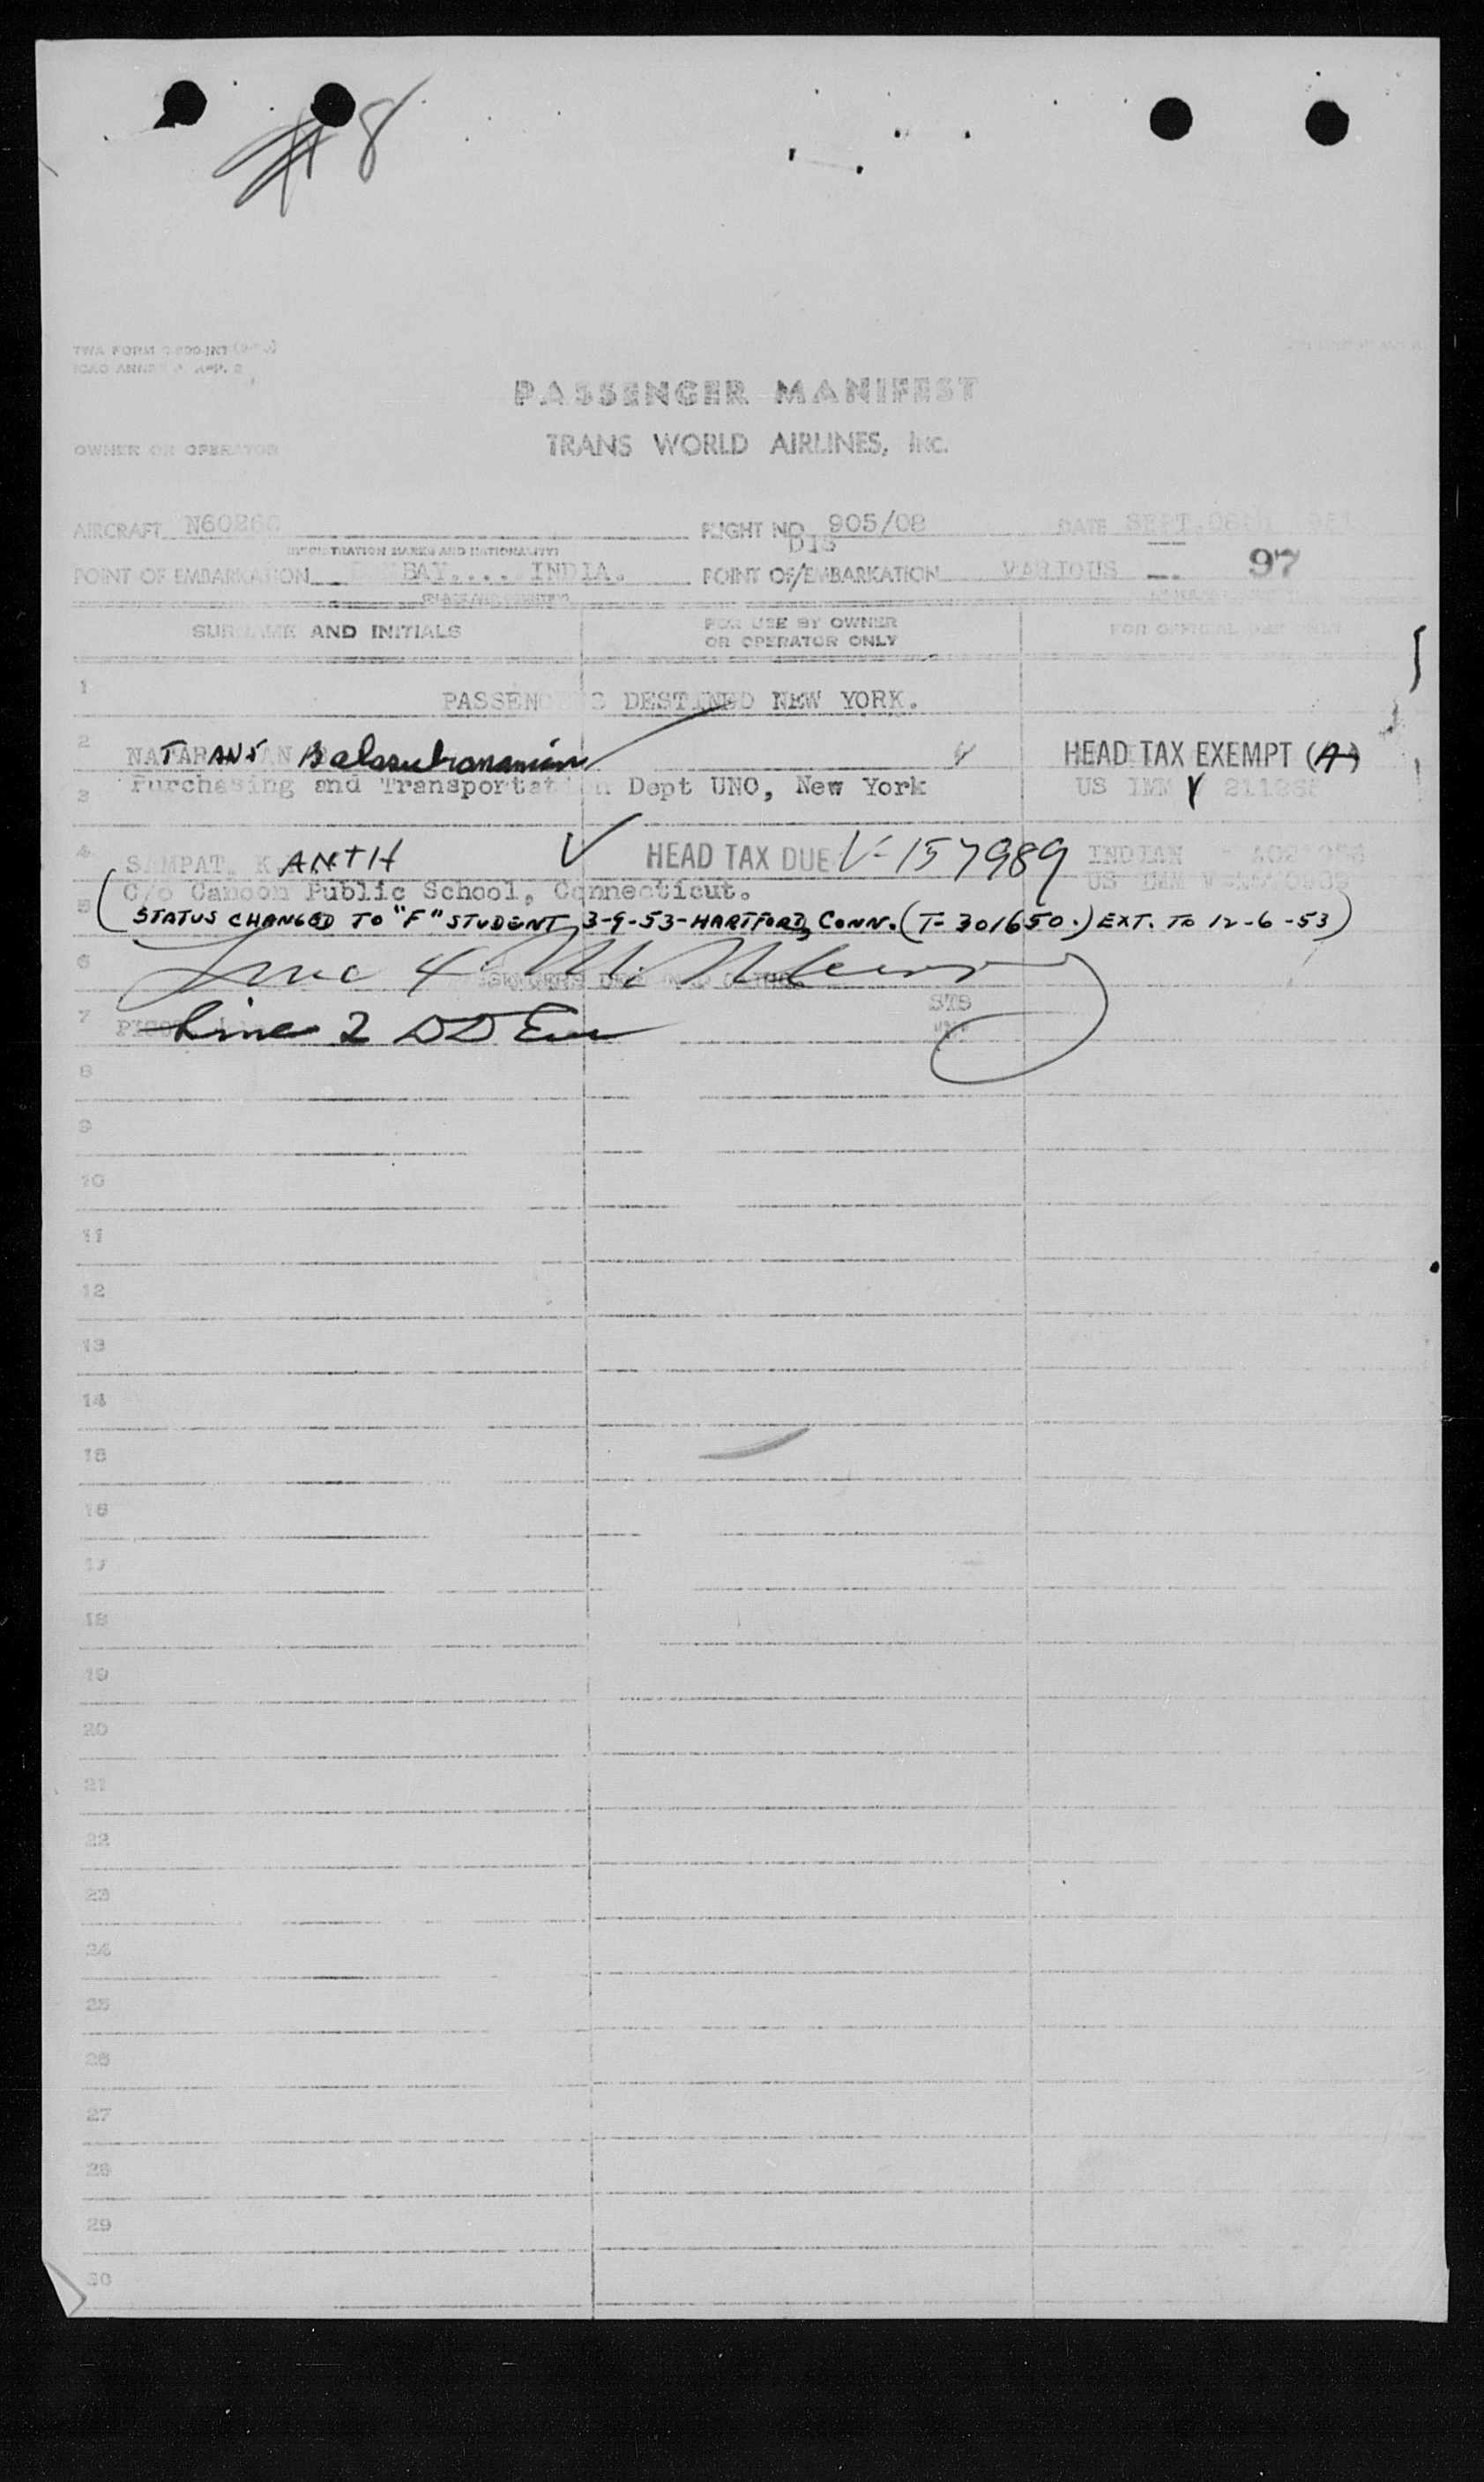 #8
TWA FORM
ICAO ANNEX 9 APP. 2
PASSENGER MANIFEST
OWNER OR OPERATOR
TRANS WORLD AIRLINES, Inc.
AIRCRAFT N6026C FLIGHT NO. 905/08 DATE SEPT. 08th
(REGISTRATION MARKS AND NATIONALITY) DIS
POINT OF EMBARKATION BAY.... INDIA. POINT OF/EMBARKATION VARIOUS 97
(PLACE AND COUNTRY)
SURNAME AND INITIALS FOR USE BY OWNER OR OPERATOR ONLY FOR OFFICIAL USE ONLY
1 PASSENGERS DESTINED NEW YORK.
2 NATARAJAN Balasubramanian HEAD TAX EXEMPT (A)
3 Purchasing and Transportation Dept UNO, New York US IMM V 211288
4 SAMPAT, K ANTH HEAD TAX DUE V-157989 INDIAN
C/o Canoon Public School, Connecticut. US IMM
5 (STATUS CHANGED TO "F" STUDENT 3-9-53-HARTFORD, CONN. (T-301650.) EXT. TO 12-6-53)
6 Line 4
STS
7 Line 2
8
9
10
11
12
13
14
15
16
17
18
19
20
21
22
23
24
25
26
27
28
29
30